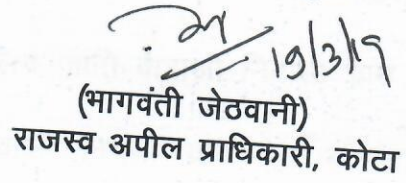 19/3/19
(भागवंती जेठवानी)
राजस्व अपील प्राधिकारी, कोटा